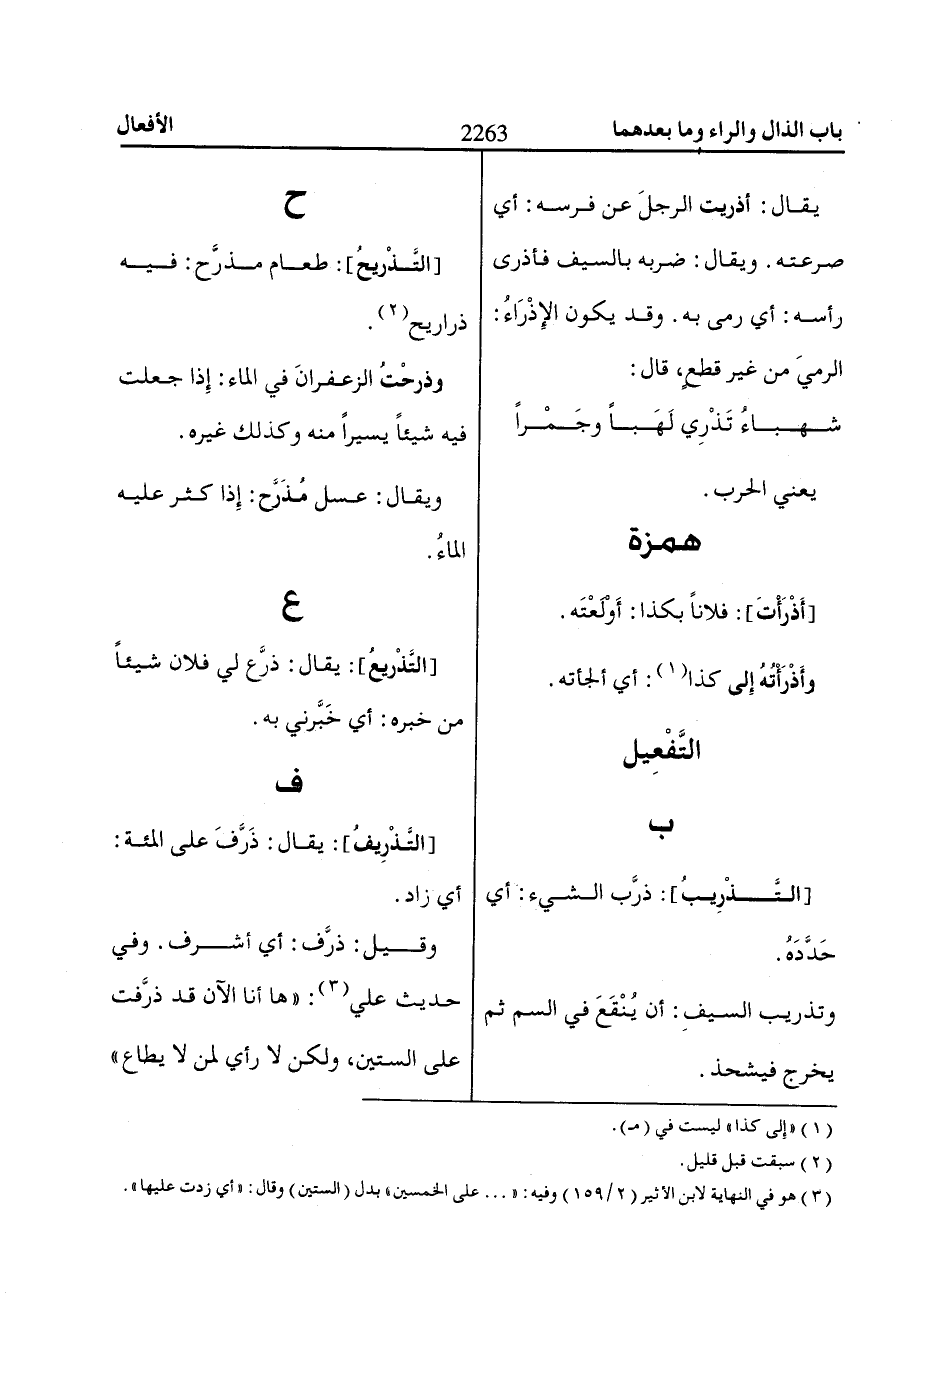 باب الذال والراء وما بعدهما
2263
الأفعال
يقال: أذريت الرجلَ عن فرسه: أي
صرعته. ويقال: ضربه بالسيف فأذرى
رأسه: أي رمى به. وقد يكون الإِذْرَاءُ:
الرميَ من غير قطعٍ، قال:
شهباءُ تَذْرِي لَهَباً وجَمْراً
يعني الحرب.
همزة
[أَذْرَأْتَ]: فلاناً بكذا: أَوْلَعْتَه.
وأَذْرَأْتُهُ إِلى كذا(١): أي ألجأته.
التَّفْعِيل
ب
[التَّذْرِيبُ]: ذرَّب الشيء: أي
حَدَّدَهُ.
وتذريب السيف: أن يُنْقَعَ في السم ثم
يخرج فيشحذ.
ح
[التَّذْرِيحُ]: طعام مذرَّح: فيه
ذراريح(٢).
وذرحْتُ الزعفرانَ في الماء: إِذا جعلت
فيه شيئاً يسيراً منه وكذلك غيره.
ويقال: عسل مُذَرَّح: إِذا كثر عليه
الماءُ.
ع
[التَّذْرِيعُ]: يقال: ذرَّع لي فلان شيئاً
من خبره: أي خَبَّرني به.
ف
[التَّذْرِيفُ]: يقال: ذَرَّفَ على المئة:
أي زاد.
وقيل: ذرَّف: أي أشرف. وفي
حديث علي(٣): «ها أنا الآن قد ذرَّفت
على الستين، ولكن لا رأي لمن لا يطاع»
(١) «إِلى كذا» ليست في (مـ).
(٢) سبقت قبل قليل.
(٣) هو في النهاية لابن الأثير (٢/١٥٩) وفيه: «... على الخمسين» بدل (الستين) وقال: «أي زدت عليها».